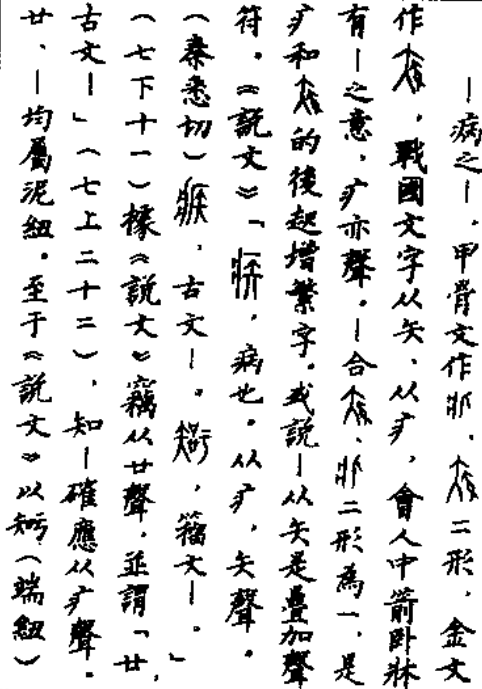 丨病之丨,甲骨文作、二形,金文
作,戰國文字从矢、从疒,會人中箭卧牀
有丨之意,疒亦聲。丨合、二形為一,是
疒和的後起增繁字。或說丨从矢是疊加聲
符。《說文》「,病也。从疒,矢聲。
(秦悉切),古文丨。,籀文丨。」
(七下十一)據《說文》竊从廿聲,並謂「廿,
古文丨」(七上二十二),知丨確應从疒聲。
廿、丨均屬泥紐。至于《說文》以(端紐)